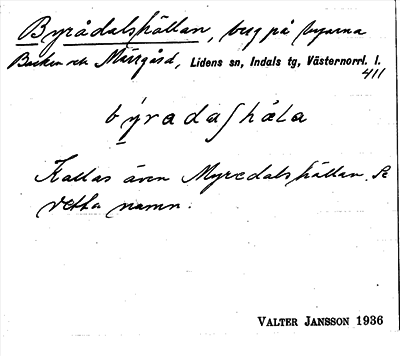 Byrådalshällan, beg på byarna
Backen och Mårgård, Lidens sn, Indals tg, Västernorrl. l.
411
býradaſhåla
Kallas även Myredalshällan. Se
detta namn.
VALTER JANSSON 1936